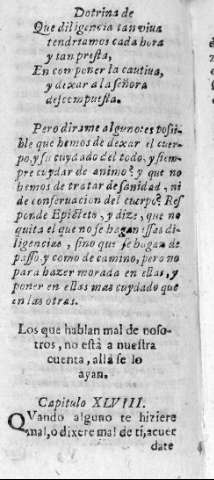 Dotrina de
Que diligencia tan viua
tendriamos cada hora
y tan presta,
En con poner la cautiua,
y dexar a la señora
descompuesta.
Pero dirame alguno es posi-
ble que hemos de dexar el cuer-
po, y su cuydado del todo, y siem-
pre cuydar de animo? y que no
hemos de tratar de sanidad, ni
de conseruacion del cuerpo? Res
ponde Epicteto, y dize, que no
quita el que no se hagan essas di-
ligencias, sino que se hagan de
passo, y como de camino, pero no
para hazer morada en ellas, y
poner en ellas mas cuydado que
en las otras.
Los que hablan mal de noso-
tros, no està a nuestra
cuenta, allà se lo
ayan.
Capitulo XLVIII.
QVando alguno te hiziere
mal, o dixere mal de ti, acuer
date